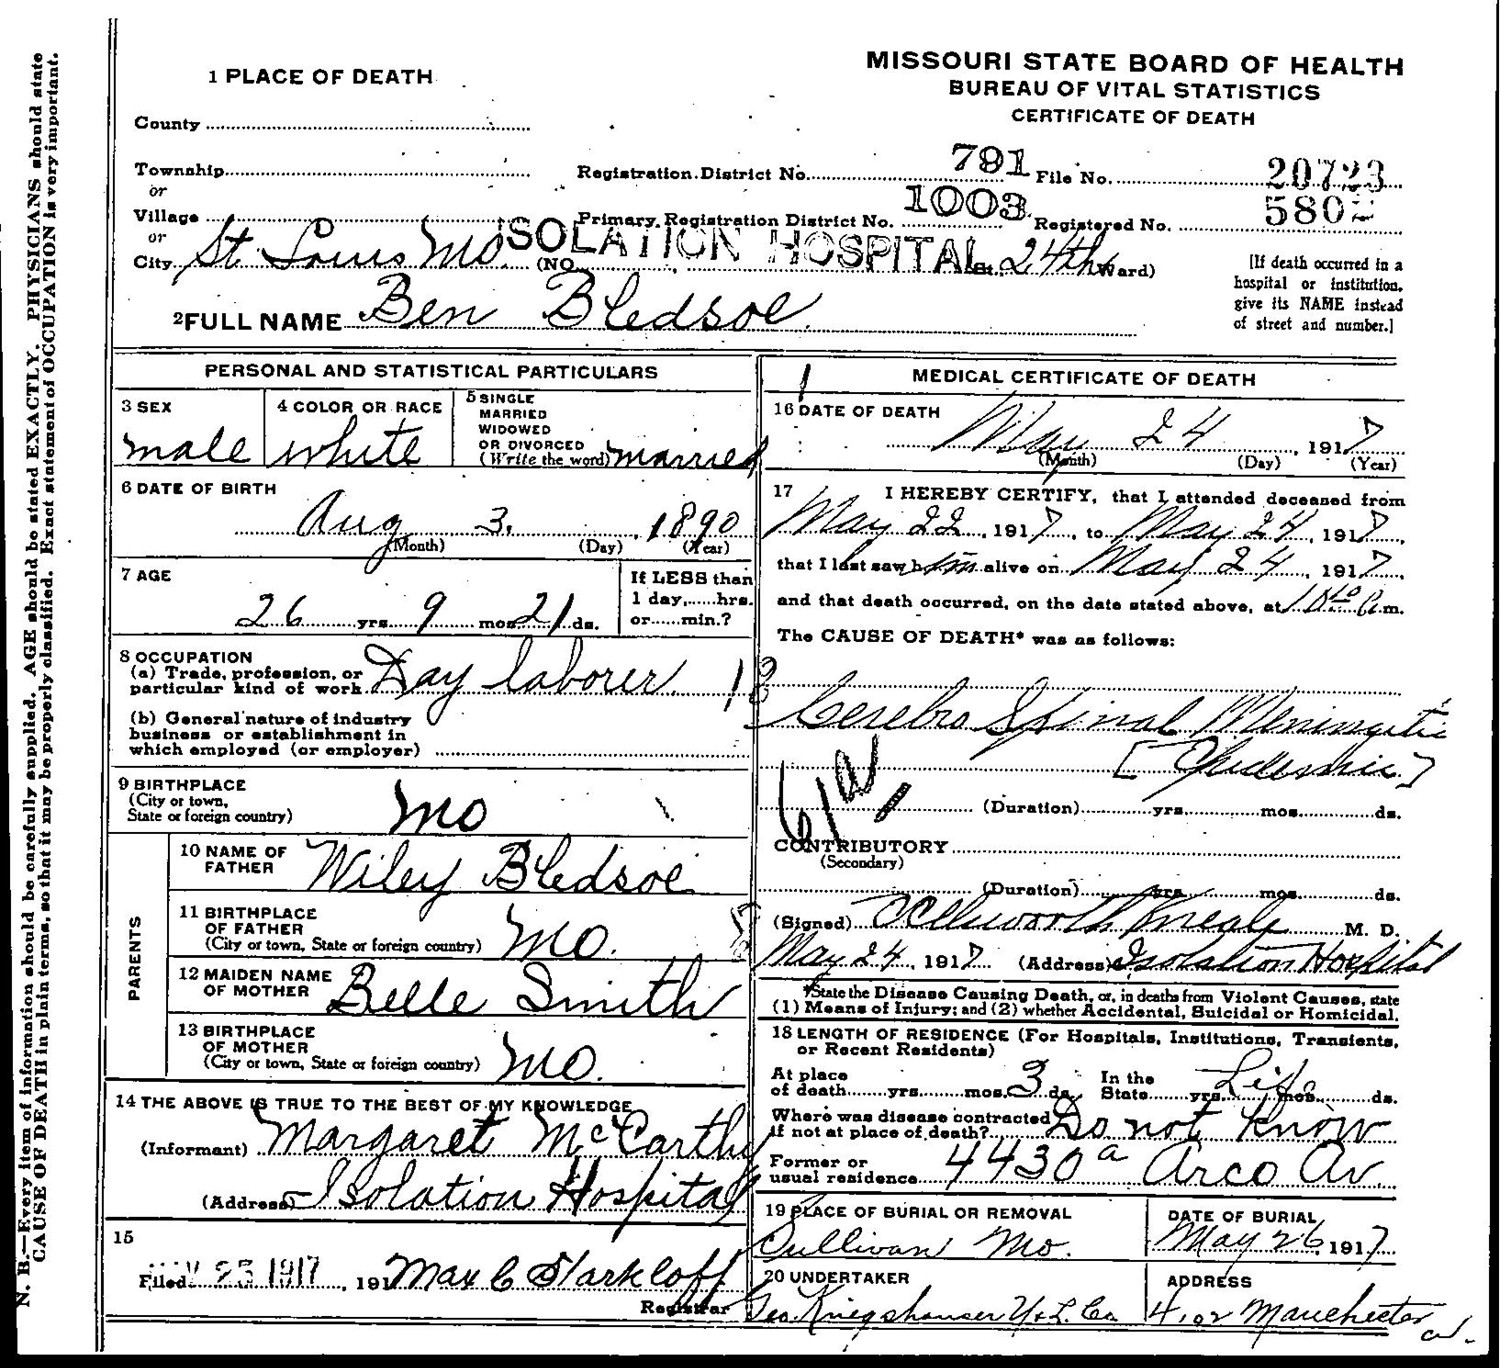 MISSOURI STATE BOARD OF HEALTH
BUREAU OF VITAL STATISTICS
CERTIFICATE OF DEATH
1 PLACE OF DEATH
County
Township
or
Village
or
City St Louis Mo. (NO. ISOLATION HOSPITAL St. 24th Ward)
Registration District No. 791
File No. 20723
Primary Registration District No. 1003
Registered No. 5802
[If death occurred in a
hospital or institution,
give its NAME instead
of street and number.]
2 FULL NAME Ben Bledsoe
PERSONAL AND STATISTICAL PARTICULARS
3 SEX
male
4 COLOR OR RACE
white
5 SINGLE
MARRIED
WIDOWED
OR DIVORCED
(Write the word) married
6 DATE OF BIRTH
Aug 3. 1890
(Month) (Day) (Year)
7 AGE
26 yrs. 9 mos. 21 ds.
If LESS than
1 day,......hrs.
or......min.?
8 OCCUPATION
(a) Trade, profession, or
particular kind of work Day laborer
(b) General nature of industry
business or establishment in
which employed (or employer)
9 BIRTHPLACE
(City or town,
State or foreign country)
Mo
PARENTS
10 NAME OF
FATHER Wiley Bledsoe
11 BIRTHPLACE
OF FATHER
(City or town, State or foreign country) Mo.
12 MAIDEN NAME
OF MOTHER Belle Smith
13 BIRTHPLACE
OF MOTHER
(City or town, State or foreign country) Mo.
14 THE ABOVE IS TRUE TO THE BEST OF MY KNOWLEDGE
(Informant) Margaret McCarthy
(Address) Isolation Hospital
15
Filed MAY 25 1917, 191 Max C Starkloff
Registrar
MEDICAL CERTIFICATE OF DEATH
16 DATE OF DEATH
May 24, 1917
(Month) (Day) (Year)
17 I HEREBY CERTIFY, that I attended deceased from
May 22, 1917, to May 24, 1917,
that I last saw him alive on May 24, 1917,
and that death occurred, on the date stated above, at m.
The CAUSE OF DEATH* was as follows:
18
Cerebro Spinal Meningitis
[Epidemic]
61a
(Duration) yrs. mos. ds.
CONTRIBUTORY
(Secondary)
(Duration) yrs. mos. ds.
(Signed) M. D.
May 24, 1917 (Address) Isolation Hospital
*State the Disease Causing Death, or, in deaths from Violent Causes, state
(1) Means of Injury; and (2) whether Accidental, Suicidal or Homicidal.
18 LENGTH OF RESIDENCE (For Hospitals, Institutions, Transients,
or Recent Residents)
At place
of death yrs. mos. 3 ds.
In the
State yrs. Life mos. ds.
Where was disease contracted
if not at place of death? Do not know
Former or
usual residence 4430a Arco Av.
19 PLACE OF BURIAL OR REMOVAL
Sullivan Mo.
DATE OF BURIAL
May 26, 1917
20 UNDERTAKER
Geo. Kriegshauser U & L. Co
ADDRESS
Manchester av.
N. B.—Every item of information should be carefully supplied. AGE should be stated EXACTLY. PHYSICIANS should state
CAUSE OF DEATH in plain terms, so that it may be properly classified. Exact statement of OCCUPATION is very important.